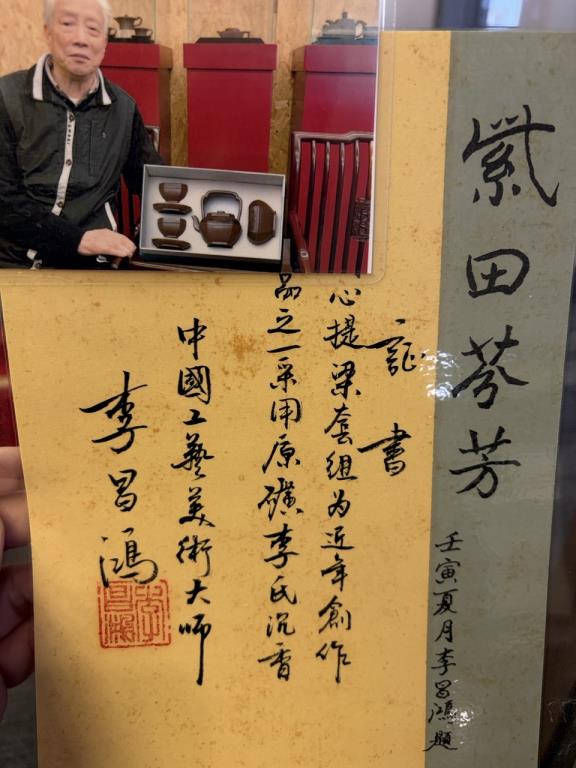 紫田芬芳
壬寅夏月李昌鴻題
証書
心提梁套組为近年創作
品之一采用原礦李氏沉香
中國工藝美術大师
李昌鴻
李昌鴻